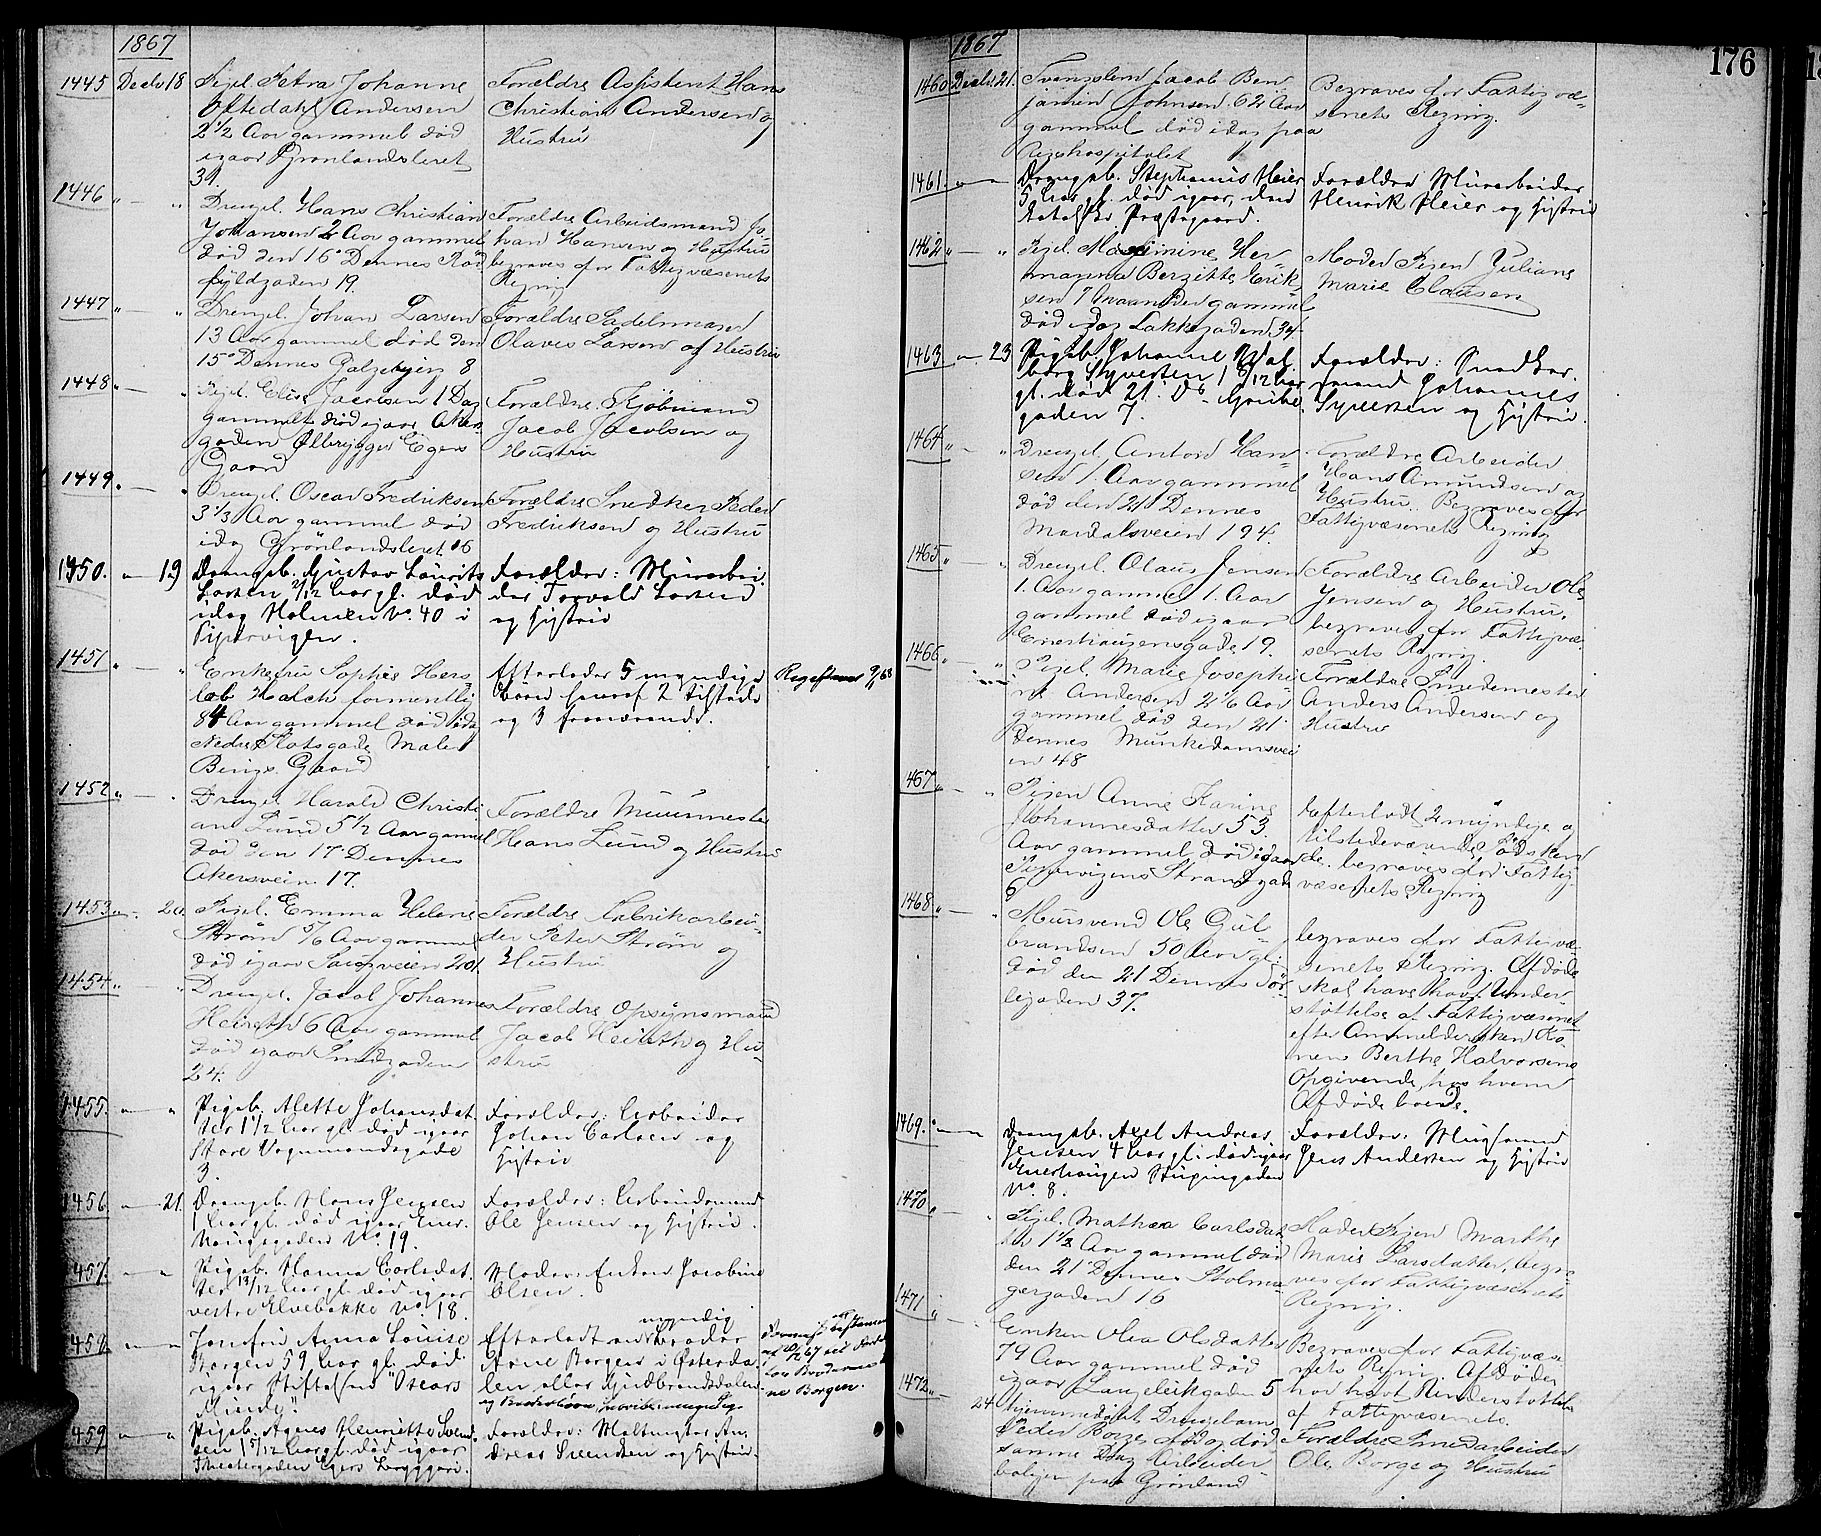 1867
1445 Decbr 18 Pigel. Petra Johanne
Oftedahl Andersen
2 1/2 Aar gammel død
igaar Grønlandsleret
31.
Forældre Assistent Hans
Christian Andersen og
Hustru
1446 " — " Drengel. Hans Christian
Johansen 2 Aar gammel
død den 16 Dennes Rød
fyldgaden 19.
Forældre Arbeidsmand Jo-
han Hansen og Hustru
begraves for Fattigvæsenets
Regnig
1447 " — " Drengel. Johan Larsen
13 Aar gammel død den
15de Dennes Galgebjerg 8
Forældre Sadelmager
Olaves Larsen og Hustru
1448 " — " Pigel. Elise Jacobsen 1 Dag
gammel død igaar Akers-
gaden Ølbrygger Egers
Gaard
Forældre Kjøbmand
Jacob Jacobsen og
Hustru
1449 " — " Drengel. Oscar Fredriksen
3 1/3 Aar gammel død
idag Grønlandsleret 16
Forældre Snedker Peder
Fredriksen og Hustru
1450. " — 19 Drengeb. Gustav Laurits
Larsen 2/12 Aar gl. død
idag Holmen No. 40 i
Pipervigen.
Forældre: Murarbei-
der Torvald Larsen
og Hustru
1451 " — " Enkefru Sophie Hers
leb Holch formentlig
84 Aar gammel død idag
Nedre Slotsgade Maler
Bergs Gaard
Efterlader 5 myndige
Børn hvoraf 2 tilstede
og 3 fraværende.
1452 " — " Drengel. Harald Christi
an Lund 5 1/2 Aar gammel
død den 17 Dennes
Akersvein 17.
Forældre Muurmester
Hans Lund og Hustru
1453 " — 20 Pigel. Emma Helene
Strøm 5/6 Aar gammel
død igaar Saugveien 201
Forældre Fabrikarbei-
der Peter Strøm og
Hustru
1454 " — " Drengel. Jacob Johannes
Heireth 6 Aar gammel
død igaar Smedgaden
24.
Forældre Opsynsmand
Jacob Heireth og Hu-
stru
1455. " — " Pigeb. Alette Johansdat
ter 1 1/2 Aar gl. død igaar
Store Vognmandsgade
3.
Forældre: Arbeider
Johan Carlsen og
Hustru
1456 " — 21. Drengeb. Hans Jensen
1 Aar gl. død igaar Ener-
haugsgaden No. 19.
Forældre: Arbeidsmand
Ole Jensen og Hustru.
1457. " — " Pigeb. Hanna Carlsdat-
ter 13/12 Aar gl. død igaar
vestre Elvebakke No. 18.
Moder: Enken Jacobine
Olsen.
1458 " — " Jomfru Anna Louise
Borgen 59 Aar gl. død
igaar Stiftelsen "Oscars
Minde".
Efterlod en myndig Broder
Arne Borgen i Østerda-
len eller Gudbrandsdalen
1459 " — " Pigeb. Agnes Henriette Svend
sen 1 5/12 Aar gl. død igaar
Theatergaden Egers Bryggeri.
Forældre: Maltmester An-
dreas Svendsen og Hustru.
1867
176
1460 Decbr. 21. Svenskem Jacob Ben
jamin Johnsen 62 Aar
gammel død idag paa
Rigshospitalet
Begraves for Fattigvæ-
senets Regnig.
1461. " — " Drengeb. Stephanus Heier
5 Aar gl. død igaar, den
katolske Præstegaard.
Forældre Murarbeider
Henrik Heier og Hustru
1462 " — " Pigel. Maximine Her
manna Bergitte Erik-
sen 7 Maaneder gammel
død idag Lakkegaden 34
Moder Pigen Juliane
Marie Clausen
1463 " — 23 Pigeb. Johanne Wal-
borg Syversen 1 8/12 Aar
gl. død 21. ds. Grube-
gaden 7.
Forældre:
Johannes
Syversen og Hustru.
1464 " — " Drengel. Anton Han-
sen 1. Aar gammel
død den 21 Dennes
Maridalsveien 194.
Forældre Arbeider
Hans Amundsen og
Hustru. Begraves for
Fattigvæsenets Regnig
1465 " — " Drengel. Olaus Jensen
1. Aar gammel 1. Aar
gammel død igaar
Enerhaugensgade 19.
Forældre Arbeider Ole
Jensen og Hustru.
begraves for Fattigvæ-
senets Regnig.
1466 " — " Pigel. Marie Josephi
ne Andersen 2 1/6 Aar
gammel død den 21
Dennes Munkedamsvei
en 48
Forældre Smedemester
Anders Andersen og
Hustru
467 " — " Pigen Anne Karine
Johannesdatter 53.
Aar gammel død igaar
Pipervigens Strandgade
6
Efterlod 2 myndige og
tilstedeværendeØdsken
de. begraves for Fattig-
væsenets Regnig
1468 " — " Muursvend Ole Gul-
brandsen 50 Aar gl.
død den 21 Dennes Tør-
tegaden 37.
begraves for Fattigvæ-
senets Regnig. Afdøde
skal have havt Under-
støttelse af Fattigvæsenet
efter Anmeldersken Ko-
nen Berthe Halvorsens
Opgivende, hos hvem
Afdøde boede.
1469. " — " Drengeb. Axel Andreas
Jensen 4 Aar gl. død igaar
Enerhaugen Stupingaden
No. 8.
Forældre:
Jens Andersen og Hustru
1470 " — " Pigel. Mathea Carlsdat
ter 1 1/2 Aar gammel død
den 21 Dennes Stolma-
gergaden 16
Moder Pigen Marthe
Marie Larsdatter, begra-
ves for Fattigvæsenets
Regnig.
1471 " Enken Olea Olsdatter
79 Aar gammel død
igaar Langeleikgaden 5
Begraves for Fattigvæse-
nets Regni. Afdøde
har havt Understøttelse
af Fattigvæsenets.
1472 " — 24 Hjemmedøbt Drengebarn
Peder Borge fød og død
samme Dag Arbeider
boliger paa Grønland
Forældre Smedarbeider
Ole Borge og Hustru